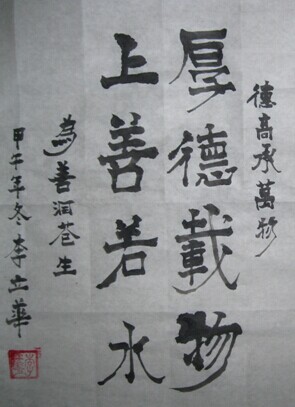 德高承萬物
厚德載物
上善若水
為善潤蒼生
甲午年冬李立華